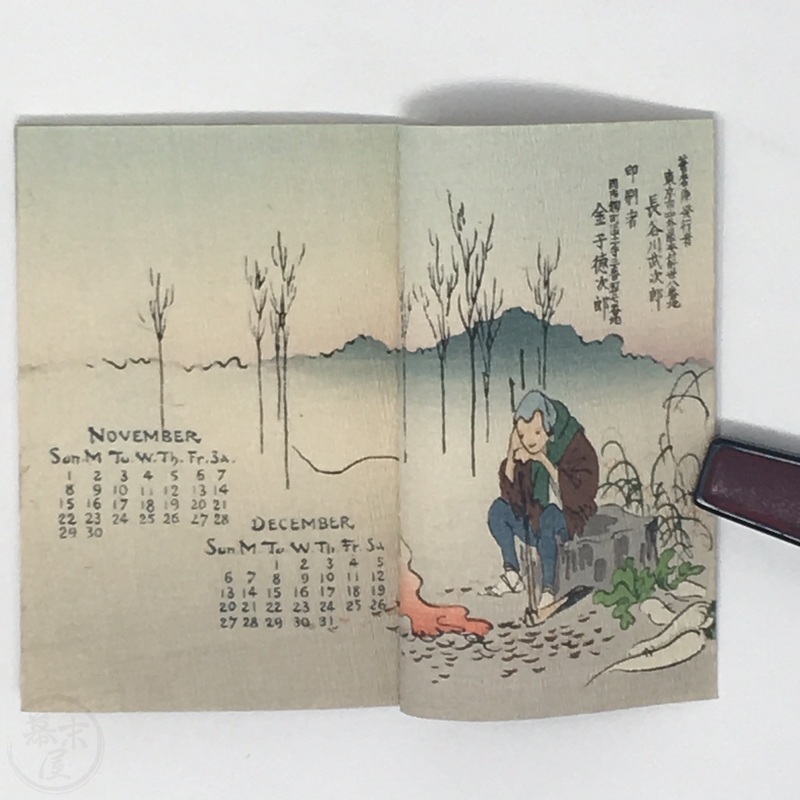 NOVEMBER
Sun. M Tu. W. Th. Fr. Sa.
1 2 3 4 5 6 7
8 9 10 11 12 13 14
15 16 17 18 19 20 21
22 23 24 25 26 27 28
29 30
DECEMBER
Sun M Tu W Th Fr Sa
1 2 3 4 5
6 7 8 9 10 11 12
13 14 15 16 17 18 19
20 21 22 23 24 25 26
27 28 29 30 31
長谷川武次郎
印刷者
金子徳次郎
幕末屋